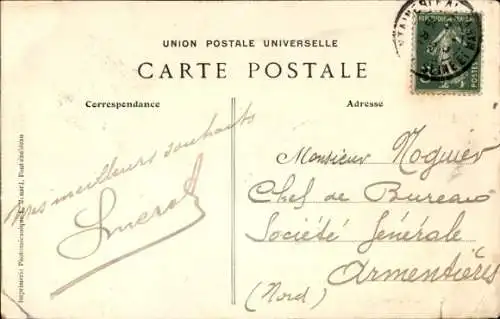 UNION POSTALE UNIVERSELLE
CARTE POSTALE
Correspondance
Adresse
Mes meilleurs souhaits
Monsieur Noguier
Chef de Bureau
Société Générale
Armentières
(Nord)
Imprimerie Photomécanique